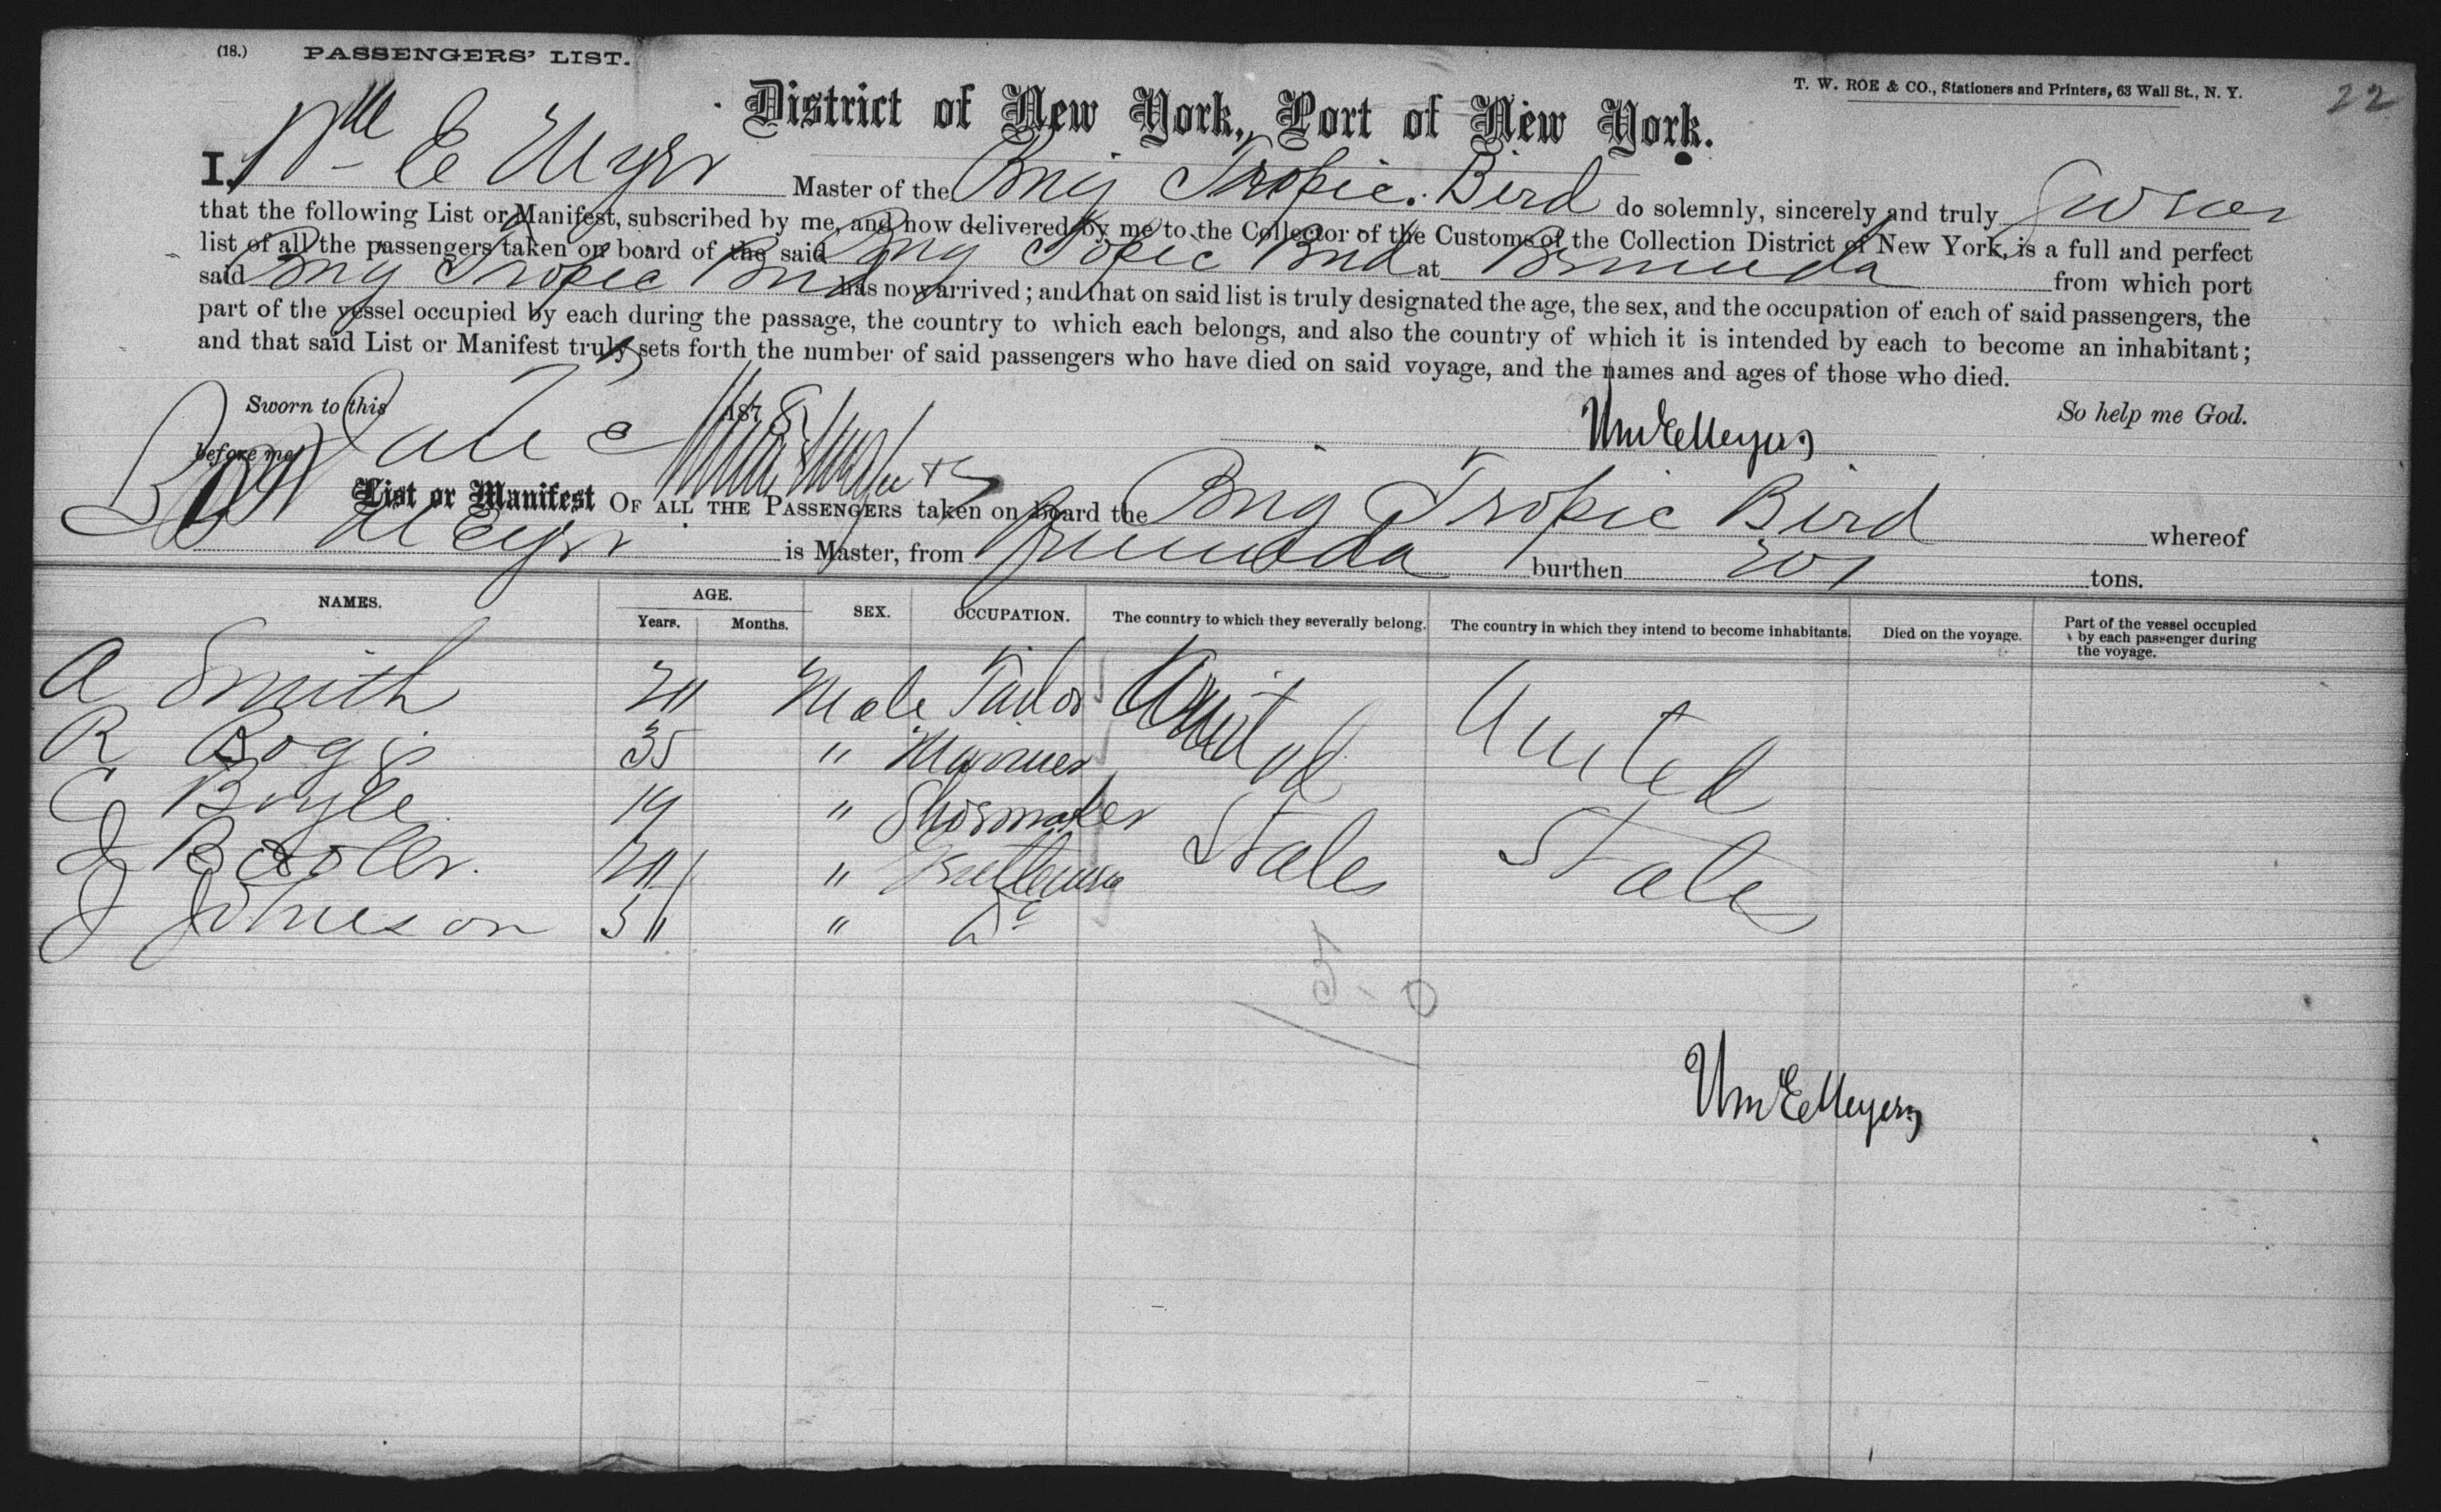 (18.) PASSENGERS' LIST.
T. W. ROE & CO., Stationers and Printers, 63 Wall St., N. Y.
22
District of New York, Port of New York.
I, Wm E Meyer Master of the Brig Tropic Bird do solemnly, sincerely and truly swear
that the following List or Manifest, subscribed by me, and now delivered by me to the Collector of the Customs of the Collection District of New York, is a full and perfect
list of all the passengers taken on board of the said Brig Topic Bird at Bermuda from which port
said Brig Tropic Bird has now arrived; and that on said list is truly designated the age, the sex, and the occupation of each of said passengers, the
part of the vessel occupied by each during the passage, the country to which each belongs, and also the country of which it is intended by each to become an inhabitant;
and that said List or Manifest truly sets forth the number of said passengers who have died on said voyage, and the names and ages of those who died.
Sworn to this 187 So help me God.
before me Wm E Meyers
List or Manifest OF ALL THE PASSENGERS taken on board the Brig Tropic Bird whereof
Meyer is Master, from Bermuda burthen 201 tons.
NAMES. AGE. Years. Months. SEX. OCCUPATION. The country to which they severally belong. The country in which they intend to become inhabitants. Died on the voyage. Part of the vessel occupied by each passenger during the voyage.
A Smith Male Tailor United United
R 35 " Mariner
C Boyle 19 " Shoemaker States States
J "
J Johnson " Do
Wm E Meyers